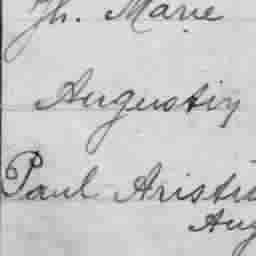 Jh. Marie
Augustin
Paul Aristi
Aug